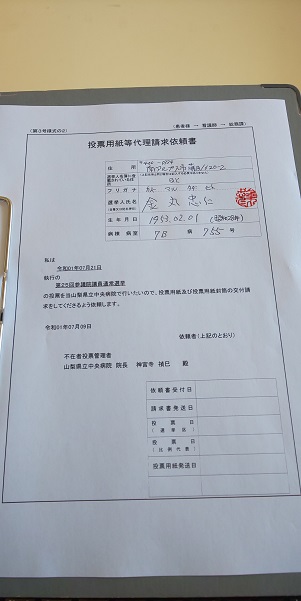 (第3号様式の2)
(患者様 → 看護師 → 総務課)
投票用紙等代理請求依頼書
住所
フリガナ
選挙人氏名
金丸忠仁
生年月日
1953.02.01 (昭和28年)
病棟 病室
7B 病 755 号
私は
令和01年07月21日
執行の
第25回参議院議員通常選挙
の投票を当山梨県立中央病院で行いたいので、投票用紙及び投票用紙封筒の交付請
求をしてくださるよう依頼します。
令和01年07月09日
依頼者(上記のとおり)
不在者投票管理者
山梨県立中央病院 院長 神宮寺 禎巳 殿
依頼書受付日
請求書発送日
投票日
(選挙区)
投票日
(比例代表)
投票用紙発送日